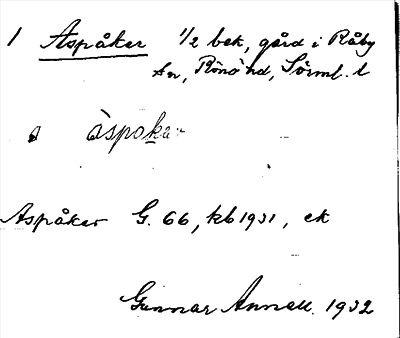 1 Aspåker 1/2 bek, gård i Råby
sn, Rönö hd, Sörml. l
åspøka
Aspåker G. 66, kb 1931, ek
Gunnar Annell. 1932